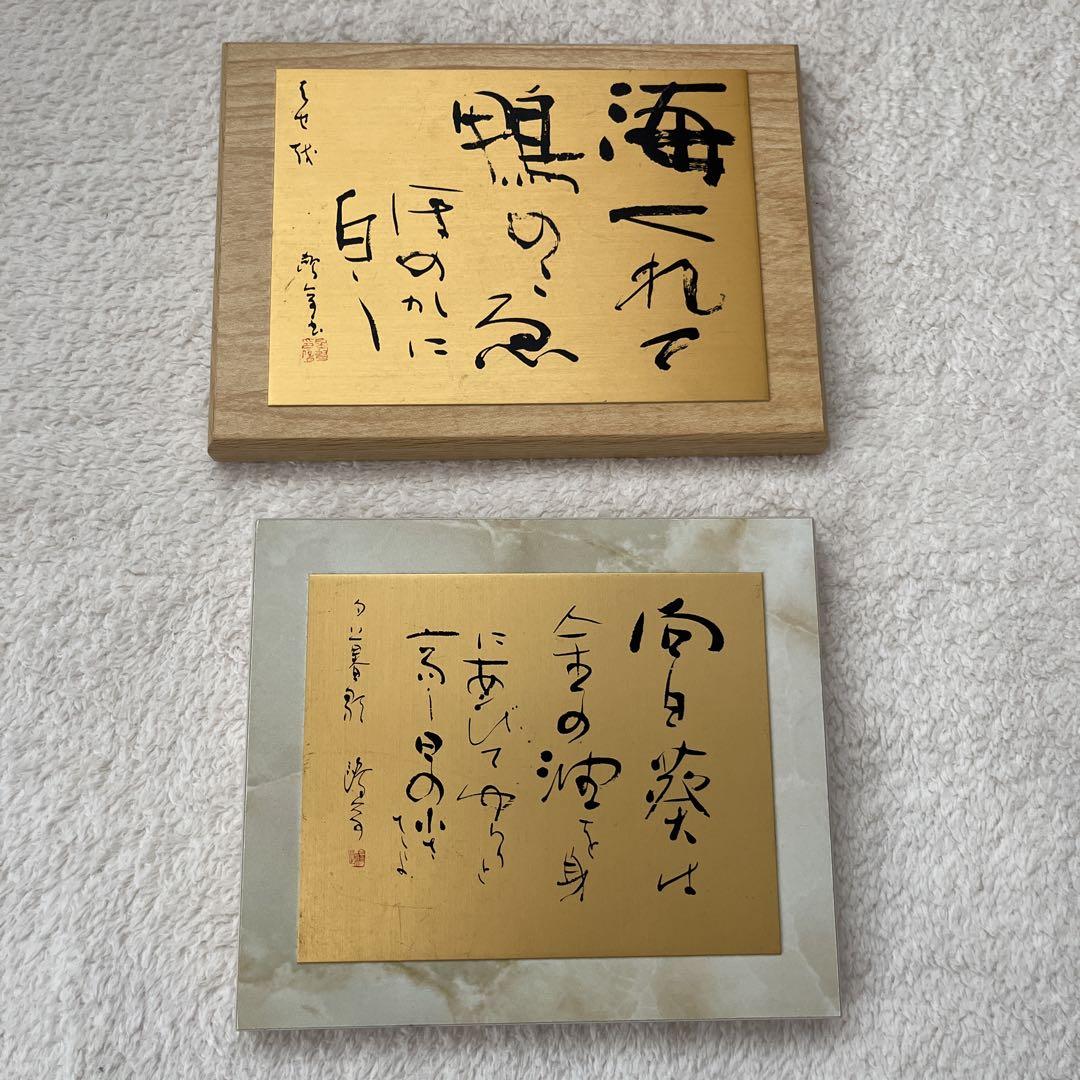 海くれて
鴨のこゑ
ほのかに
白し
はせ越
向日葵は
金の油を身
にあびてゆらりと
高し日の小ささよ
夕暮歌